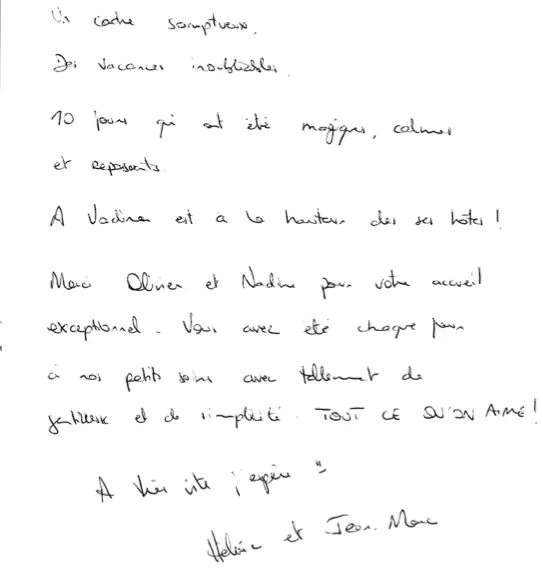 Un cadre somptueux.
Des vacances inoubliables.
10 jours qui ont été magiques, calmes
et reposants.
A Nadine est à la hauteur des ses hôtes !
Merci Olivier et Nadine pour votre accueil
exceptionnel. Vous avez été chaque jour
à nos petits soins avec tellement de
gentillesse et de simplicité. TOUT CE QU'ON AIME !
A très vite j'espère
Hélène et Jean-Marc